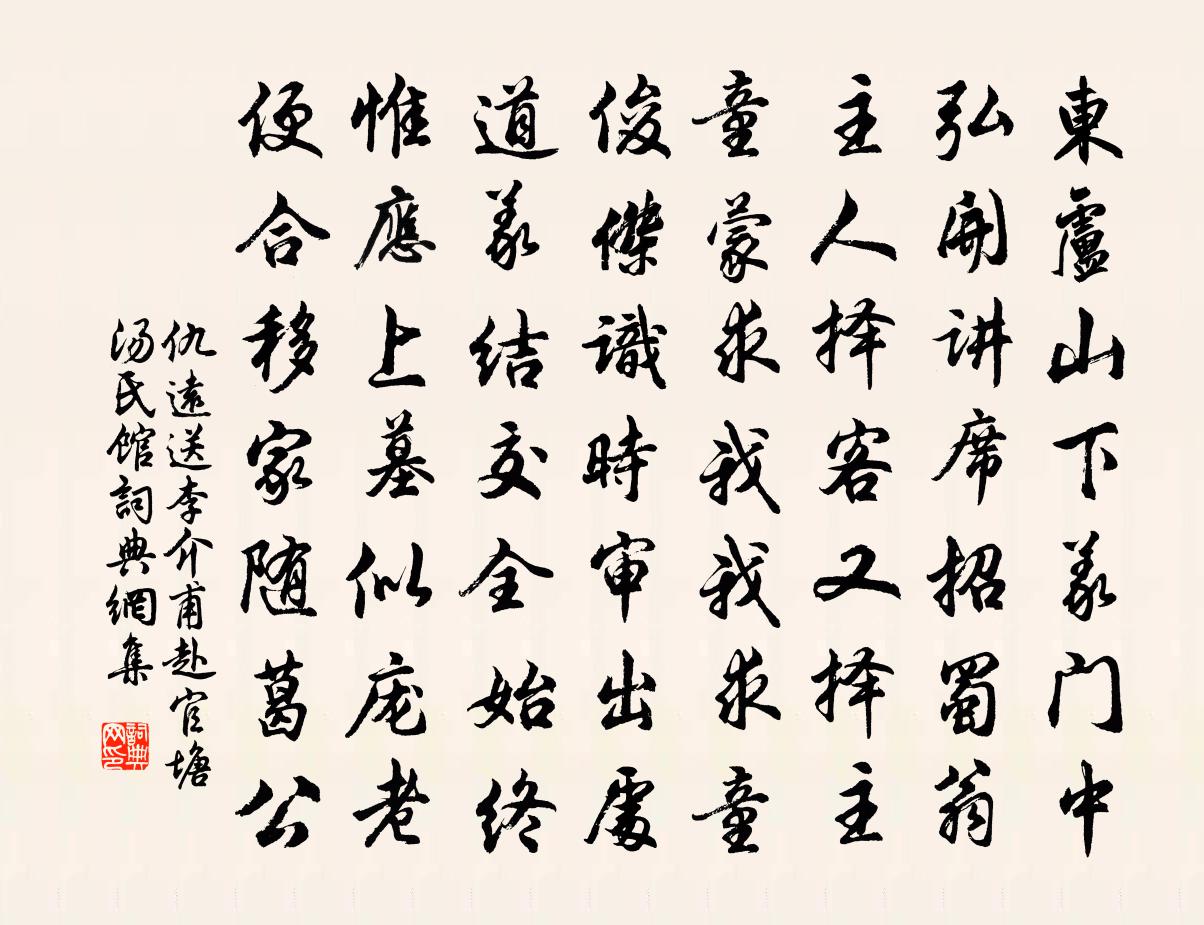 東盧山下義门中
弘開讲席招蜀翁
主人择客又择主
童蒙求我我求童
俊傑識時审出處
道義结交全始终
惟應上墓似庞老
便合移家随葛公
仇遠送李介甫赴官塘
汤氏馆詞典網集
詞典网印